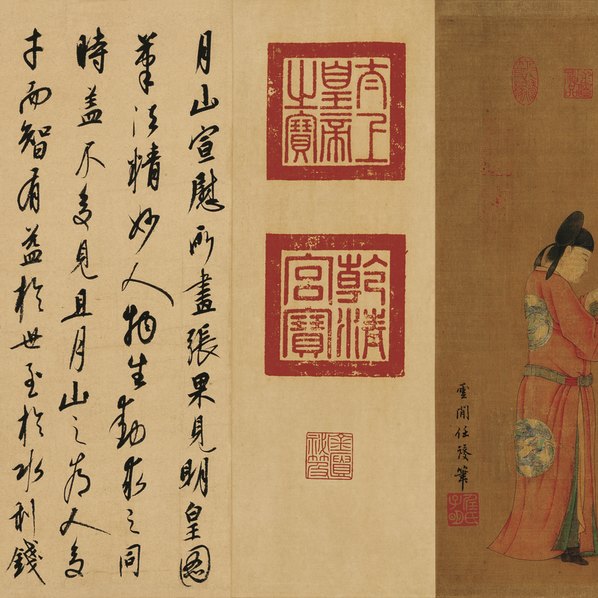 雲閒任發筆
任氏子明
太上
皇帝
之寶
乾清
宮寶
月山宣慰所畫張果見明皇圖
筆法精妙人物生動求之同
時蓋不多見且月山之為人多
才而智有益於世至於水利錢